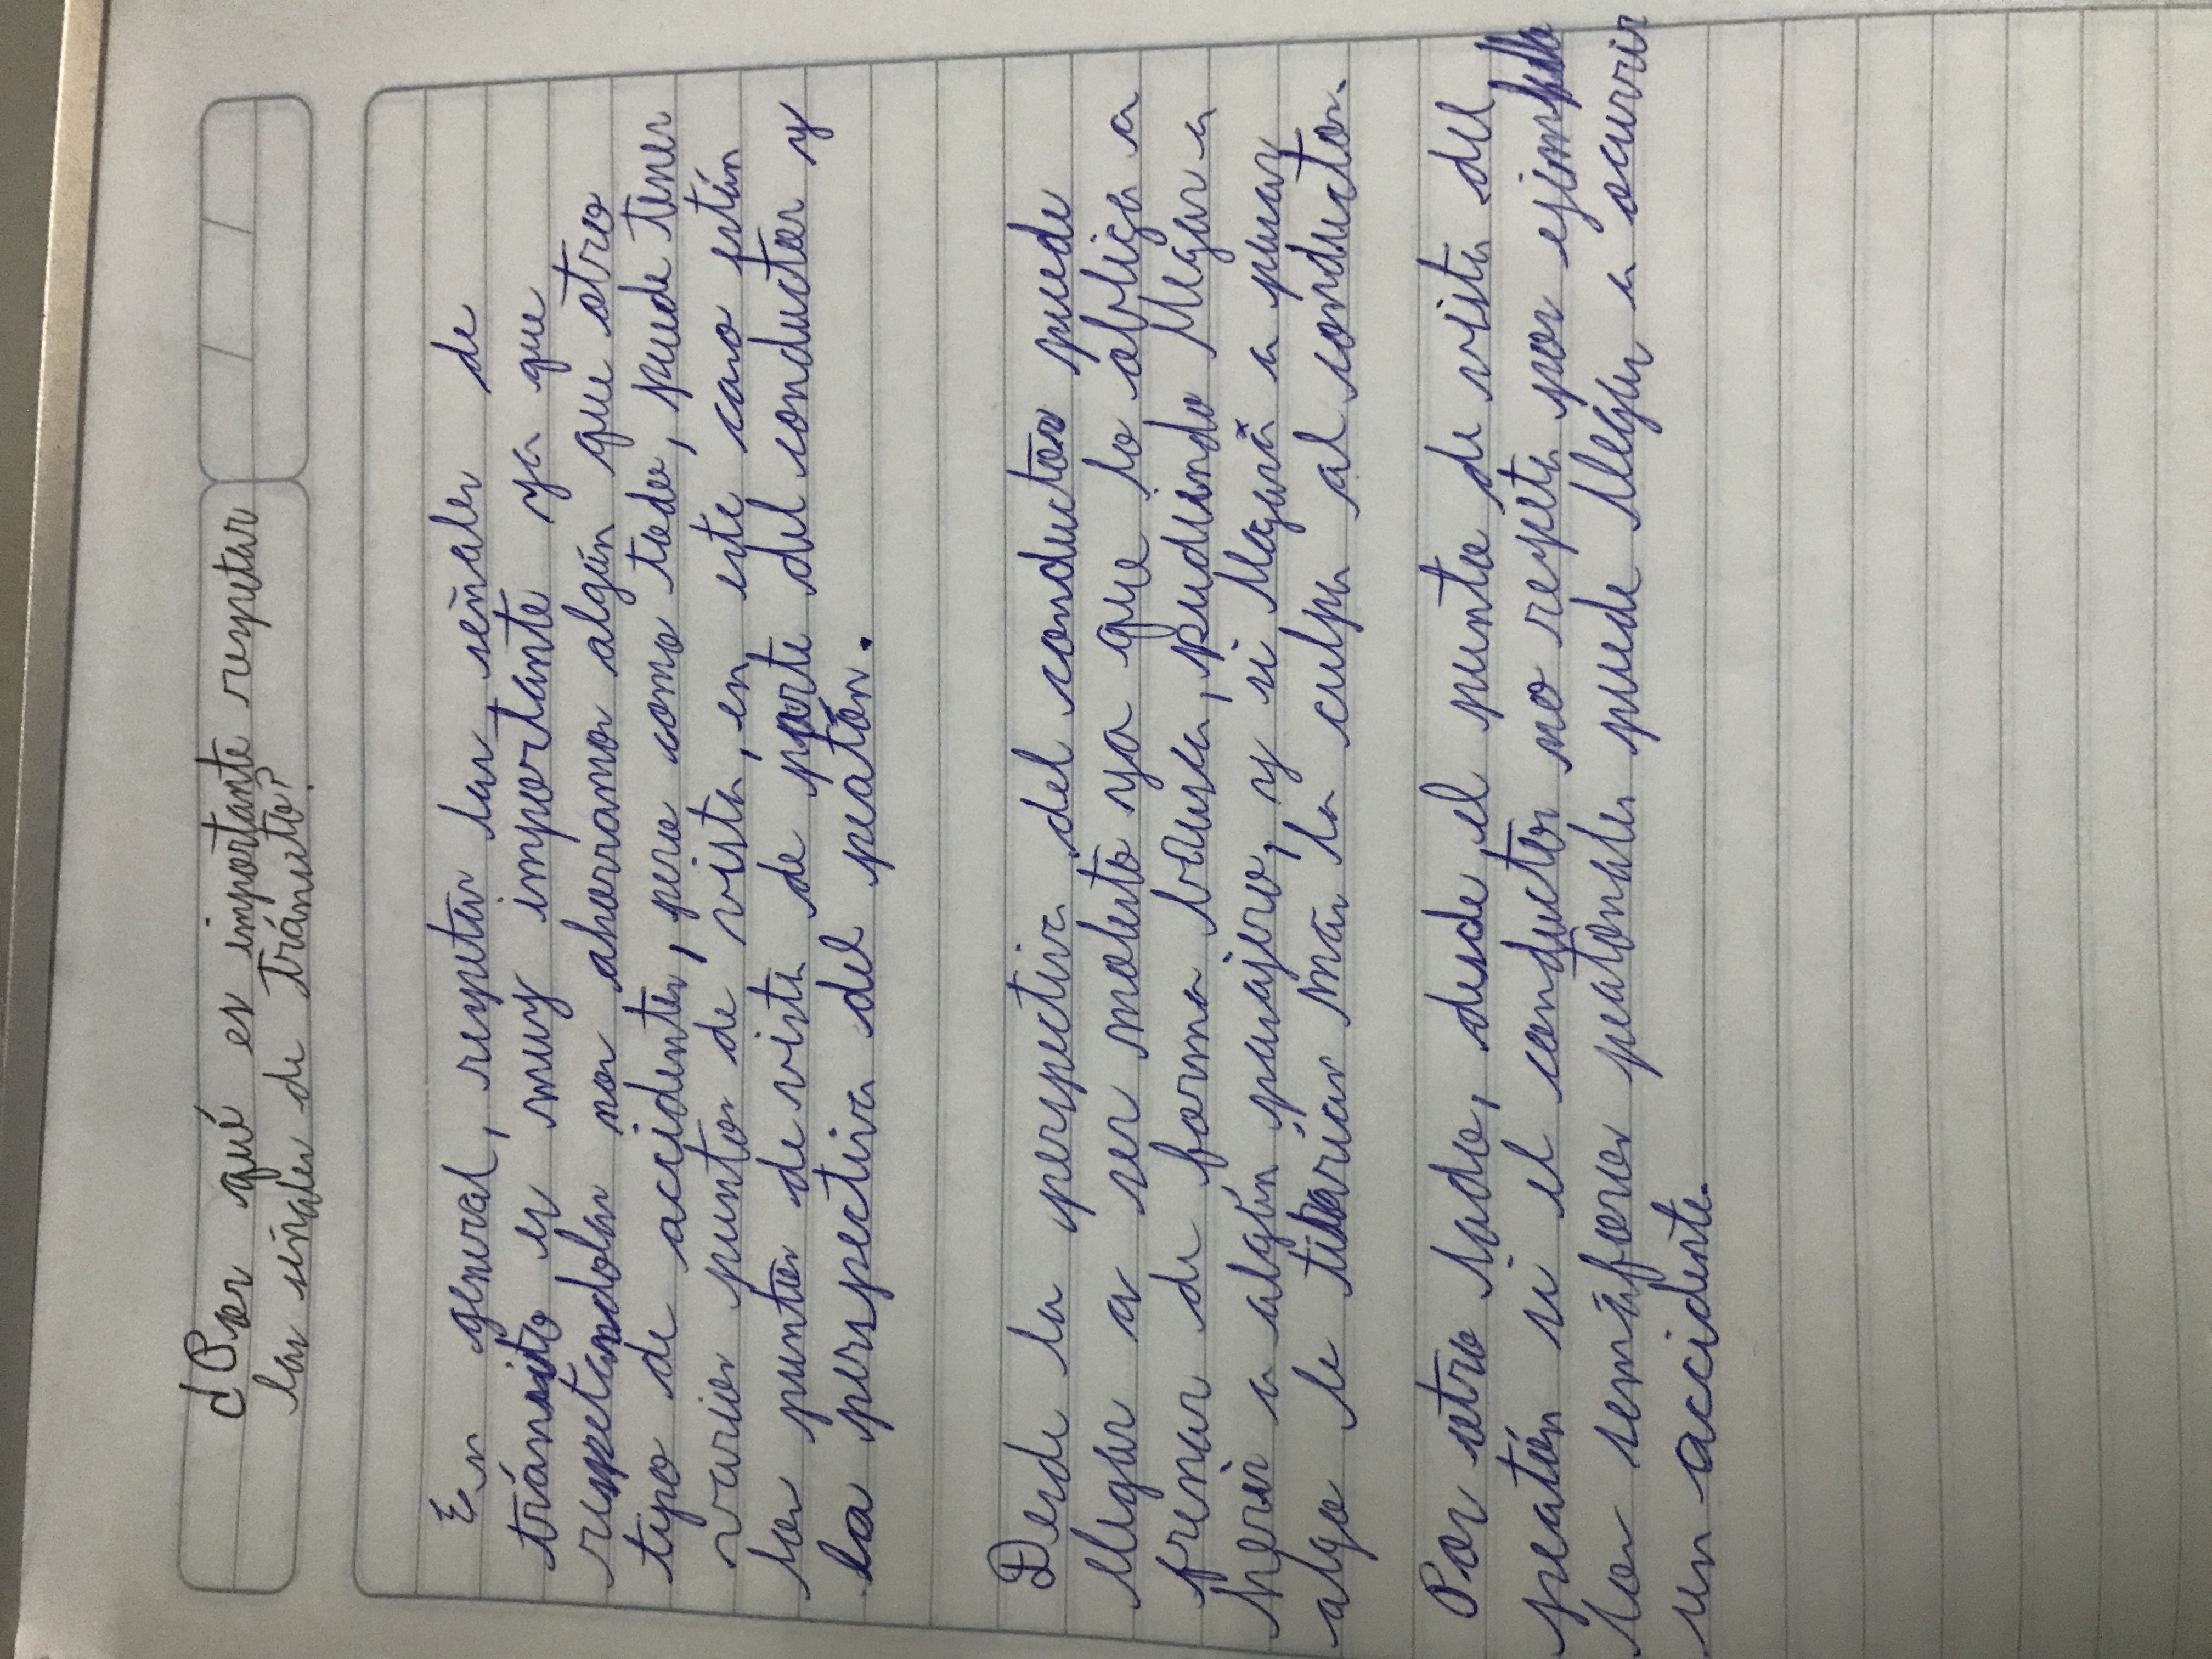 ¿Por qué es importante respetar
las señales de tránsito?
En general, respetar las señales de
tránsito es muy importante ya que
respetandolas nos ahorramos algún que otro
tipo de accidente, pero como todo, puede tener
varios puntos de vista, en este caso están
los puntos de vista de parte del conductor y
la perspectiva del peatón.
Desde la perspectiva del conductor puede
llegar a ser molesto ya que lo obliga a
frenar de forma brusca, pudiendo llegar a
herir a algún pasajero, y si llegará a pasar
algo le tirarían más la culpa al conductor.
Por otro lado, desde el punto de vista del
peatón si el conductor no respeta por ejemplo
los semáforos peatonales puede llegar a ocurrir
un accidente.